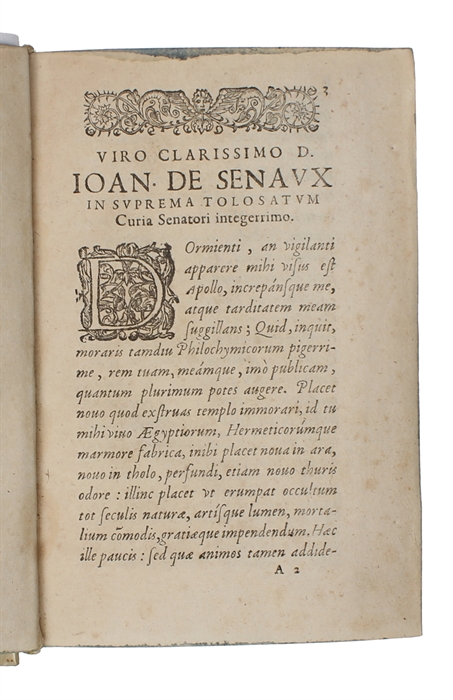 3
VIRO CLARISSIMO D.
IOAN· DE SENAVX
IN SVPREMA TOLOSATVM
Curia Senatori integerrimo.
DOrmienti, an vigilanti
apparere mihi visus est
Apollo, increpánsque me,
atque tarditatem meam
suggillans; Quid, inquit,
moraris tamdiu Philochymicorum pigerri-
me, rem tuam, meámque, imò publicam,
quantum plurimum potes augere. Placet
nouo quod exstruas templo immorari, id tu
mihi viuo Ægyptiorum, Hermeticorúmque
marmore fabrica, inibi placet noua in ara,
nouo in tholo, perfundi, etiam nouo thuris
odore: illinc placet vt erumpat occultum
tot seculis naturæ, artísque lumen, morta-
lium cōmodis, gratiæque impendendum. Hæc
ille paucis: sed quæ animos tamen addide-
A 2